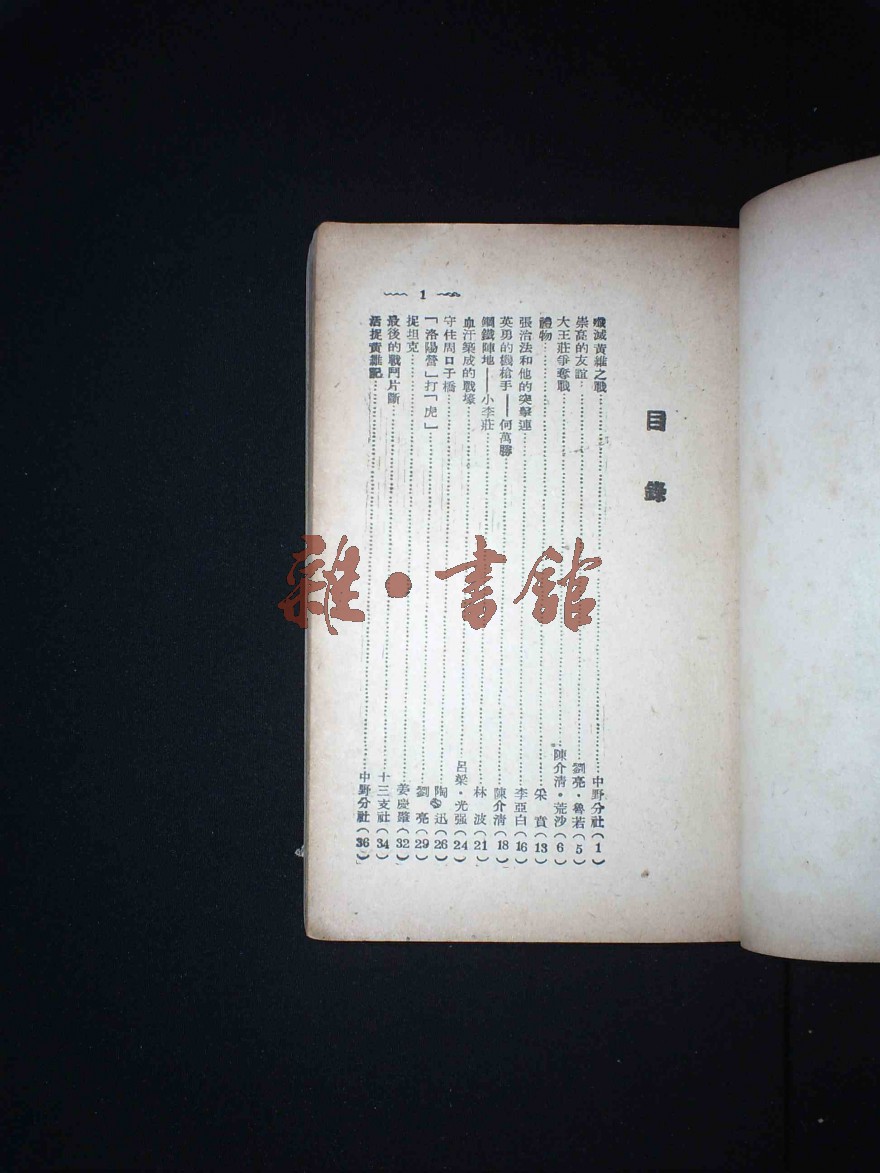 目錄
殲滅黃維之戰……中野分社(1)
崇高的友誼……劉亮·魯若(5)
大王莊爭奪戰……陳介清·荒沙(6)
禮物……采賁(13)
張治法和他的突擊連……李亞白(16)
英勇的機槍手——何萬勝……陳介清(18)
鋼鐵陣地——小李莊……林波(21)
血汗築成的戰壕……呂梁·光强(24)
守住周口子橋……陶迅(26)
「洛陽營」打「虎」……劉亮(29)
捉坦克……姜慶肇(32)
最後的戰鬥片斷……十三支社(34)
活捉黃維記……中野分社(36)
1
雜·書館